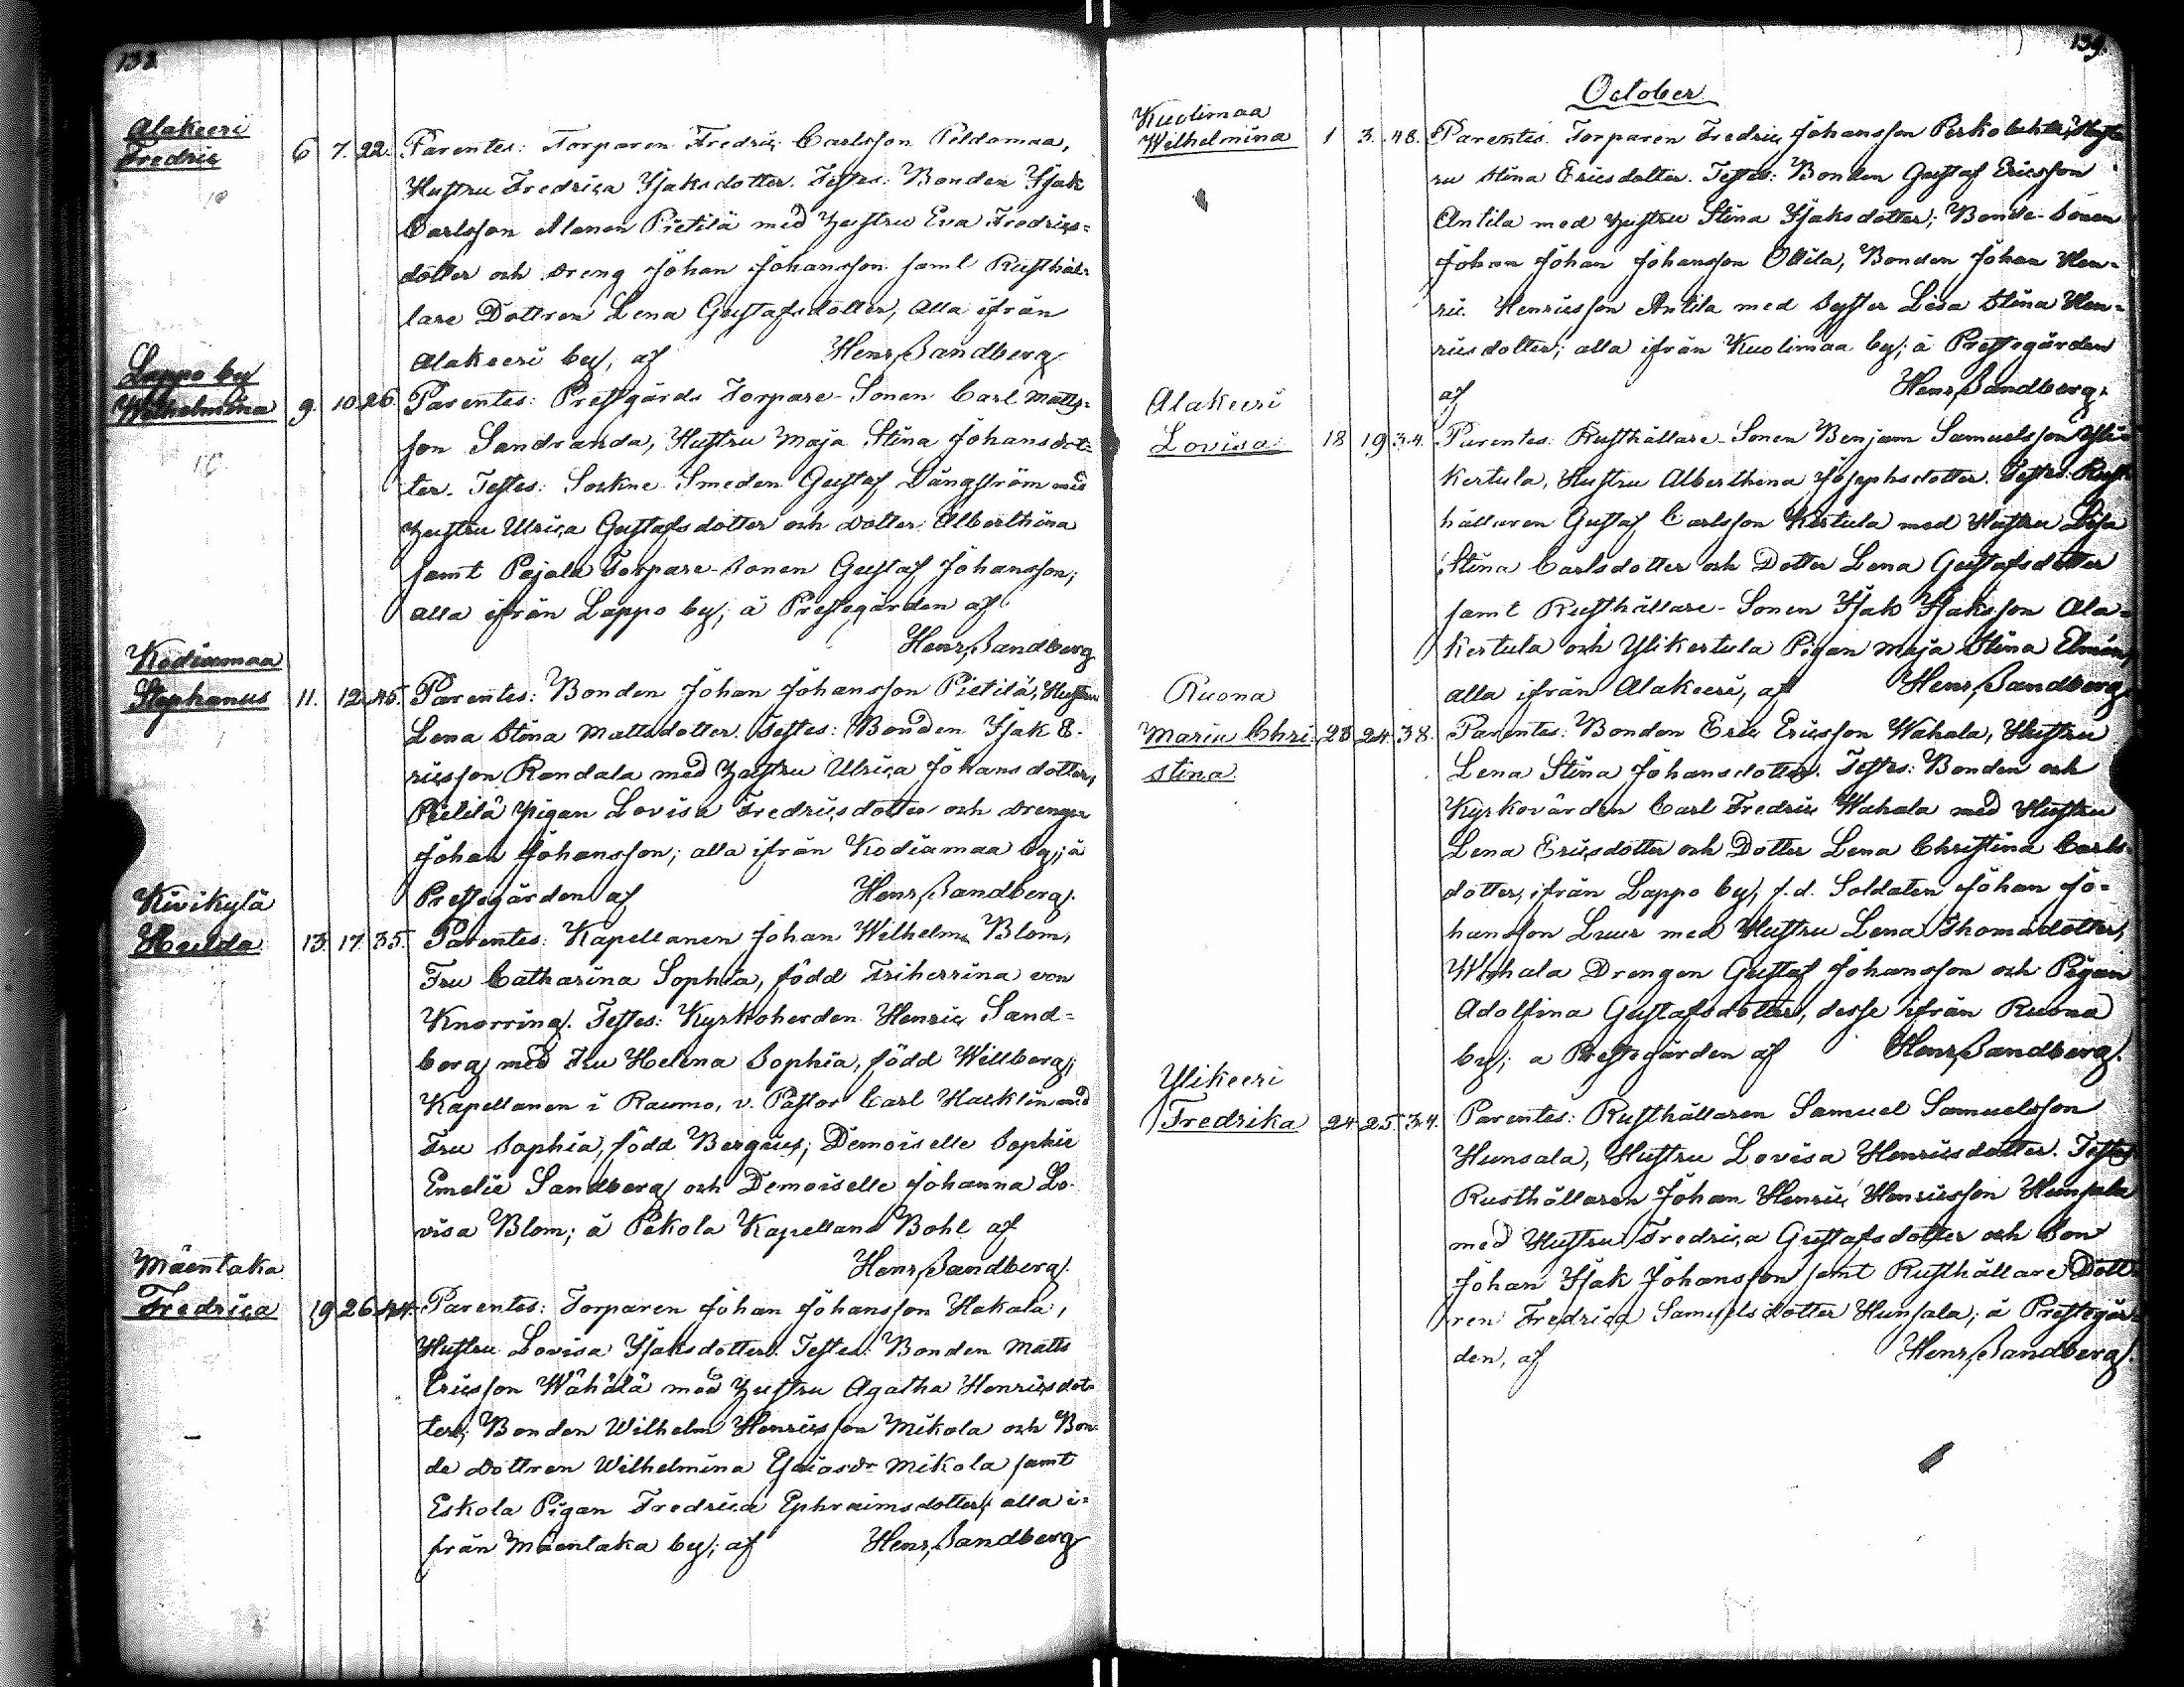 138
Alakeeri
Fredric 6 7. 22. Parentes: Torparen Fredric Carlsson Peldomaa,
Hustru Fredrica Isaksdotter. Testes: Bonden Isak
Carlsson Alanen Pietilä med Hustru Eva Fredrics=
dotter och Dreng Johan Johansson saml Rusthål=
lare Dottren Lena Gustafsdotter, alla ifrån
Alakeeri by, af Henr. Sandberg
Lappo by
Wilhelmina 9. 10. 26. Parentes: Prestgårds Torpare-Sonen Carl Matts=
son Sandranda, Hustru Maja Stina Johansdot=
ter. Testes: Sockne Smeden Gustaf Långström med
Hustru Ulrica Gustafsdotter och Dotter Alberthina
samt Pajala Torpare-Sonen Gustaf Johansson;
alla ifrån Lappo by; å Prestegården af
Henr. Sandberg
Kodiamaa
Stephanus 11. 12. 45. Parentes: Bonden Johan Johansson Pietilä, Hustru
Lena Stina Mattsdotter. Testes: Bonden Isak E-
ricsson Randala med Hustru Ulrica Johansdotter,
Pietilä Pigan Lovisa Fredricsdotter och Drengen
Johan Johansson; alla ifrån Kodiamaa by; å
Prestegården af Henr. Sandberg.
Kivikylä
Hulda 13. 17. 35. Parentes: Kapellanen Johan Wilhelm Blom,
Fru Catharina Sophia, född Friherrina von
Knorring. Testes: Kyrkoherden Henric Sand=
berg med Fru Helena Sophia, född Willberg;
Kapellanen i Raumo, v. Pastor Carl Hacklin med
Fru Sophia, född Bergius; Demoiselle Sophie
Emelie Sandberg och Demoiselle Johanna Lo-
visa Blom; å Pakola Kapellans Bohl af
Henr. Sandberg.
Mäentaka
Fredrica 19 26 44. Parentes: Torparen Johan Johansson Hakala,
Hustru Lovisa Isaksdotter. Testes: Bonden Matts
Ericsson Wähälä med Hustru Agatha Henricsdot-
ter; Bonden Wilhelm Henricsson Mikola och Bon-
de Dottren Wilhelmina Mikola samt
Eskola Pigan Fredrica Ephraimsdotter; alla i=
från Mäentaka by; af Henr. Sandberg
139.
October
Kuolimaa
Wilhelmina 1 3. 48. Parentes. Torparen Fredric Johansson Hust-
ru Stina Ericsdotter. Testes: Bonden Gustaf Ericsson
Antila med Hustru Stina Isaksdotter; Bonde-Sonen
Johan Johan Johansson Ollila, Bonden Johan Hen=
ric. Henricsson Antila med Syster Lisa Stina Hen=
ricsdotter; alla ifrån Kuolimaa by; å Prestegården
af Henr. Sandberg.
Alakeeri
Lovisa 18 19 34. Parentes: Rusthållare-Sonen Benjam Samuelsson Yli=
kertula, Hustru Alberthina Josephsdotter. Testes: Rust-
hållaren Gustaf Carlsson Kertula med Hustru Lisa
Stina Carlsdotter och Dotter Lena Gustafsdotter
samt Rusthållare-Sonen Isak Isaksson Ala=
kertula och Ylikertula Pigan Maja Stina
alla ifrån Alakeeri, af Henr. Sandberg
Ruona
Maria Chri- 23 24. 38. Parentes: Bonden Eric Ericsson Wahala, Hustru
stina. Lena Stina Johansdotter. Testes: Bonden och
Kyrkovärden Carl Fredric Wahala med Hustru
Lena Ericsdotter och Dotter Lena Christina Carls-
dotter, ifrån Lappo by, f.d. Soldaten Johan Jo=
hansson Luur med Hustru Lena Thomasdotter,
Wahala Drengen Gustaf Johansson och Pigan
Adolfina Gustafsdotter, desse ifrån Ruona
by; a Prestegården af Henr. Sandberg.
Ylikeeri
Fredrika 24 25 34. Parentes: Rusthållaren Samuel Samuelsson
Hunsala, Hustru Lovisa Henricsdotter. Testes
Rusthållaren Johan Henric Henricsson Hunsala
med Hustru Fredrica Gustafsdotter och Son
Johan Isak Johansson samt Rusthållare Dott-
ren Fredrica Samuelsdotter Hunsala; å Prestegår=
den, af Henr. Sandberg.